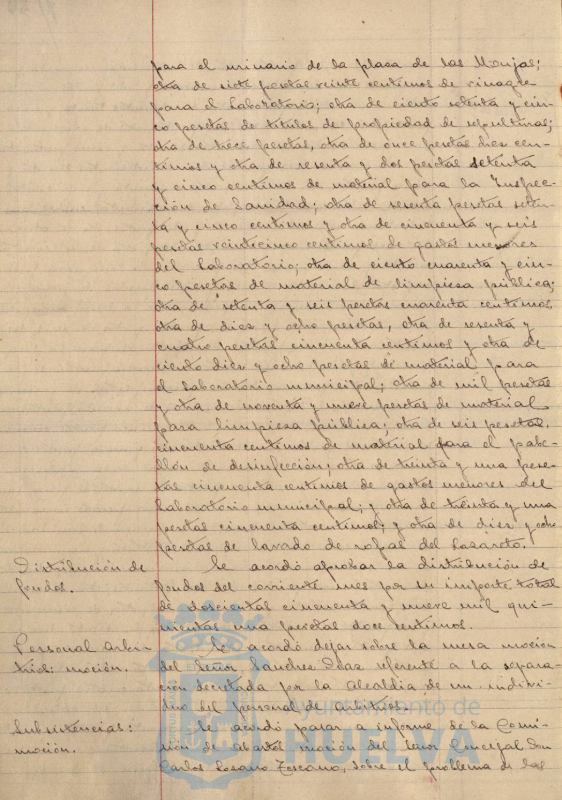 para el urinario de la plaza de las Monjas;
otra de siete pesetas veinte centimos de vinagre
para el Laboratorio; otra de ciento setenta y cin-
co pesetas de titulos de propiedad de sepulturas;
otra de trece pesetas, otra de once pesetas diez cen-
timos y otra de sesenta y dos pesetas setenta
y cinco centimos de material para la Inspec-
ción de Sanidad; otra de sesenta pesetas seten-
ta y cinco centimos y otra de cincuenta y seis
pesetas veinticinco centimos de gastos menores
del Laboratorio; otra de ciento cuarenta y cin-
co pesetas de material de limpieza pública;
otra de setenta y seis pesetas cuarenta centimos,
otra de diez y ocho pesetas, otra de sesenta y
cuatro pesetas cincuenta centimos y otra de
ciento diez y ocho pesetas de material para
el Laboratorio municipal; otra de mil pesetas
y otra de noventa y nueve pesetas de material
para limpieza pública; otra de seis pesetas
cincuenta centimos de material para el pabe-
llón de desinfección; otra de treinta y una pese-
tas cincuenta centimos de gastos menores del
Laboratorio municipal; y otra de treinta y una
pesetas cincuenta centimos; y otra de diez y ocho
pesetas de lavado de ropas del Lazareto.
Distribución de fondos.
Se acordó aprobar la distribución de
fondos del corriente mes por su importe total
de doscientas cincuenta y nueve mil qui-
nientas una pesetas doce centimos.
Personal arbi-
trios: moción.
Se acordó dejar sobre la mesa moción
del Señor Sanchez Diaz referente a la separa-
ción decretada por la Alcaldia de un indivi-
duo del personal de arbitrios.
Subsistencias:
moción.
Se acordó pasar a informe de la Comi-
sión de abastos moción del Señor Concejal Don
Carlos Lozano Toscano, sobre el problema de las
Ayuntamiento de
HUELVA